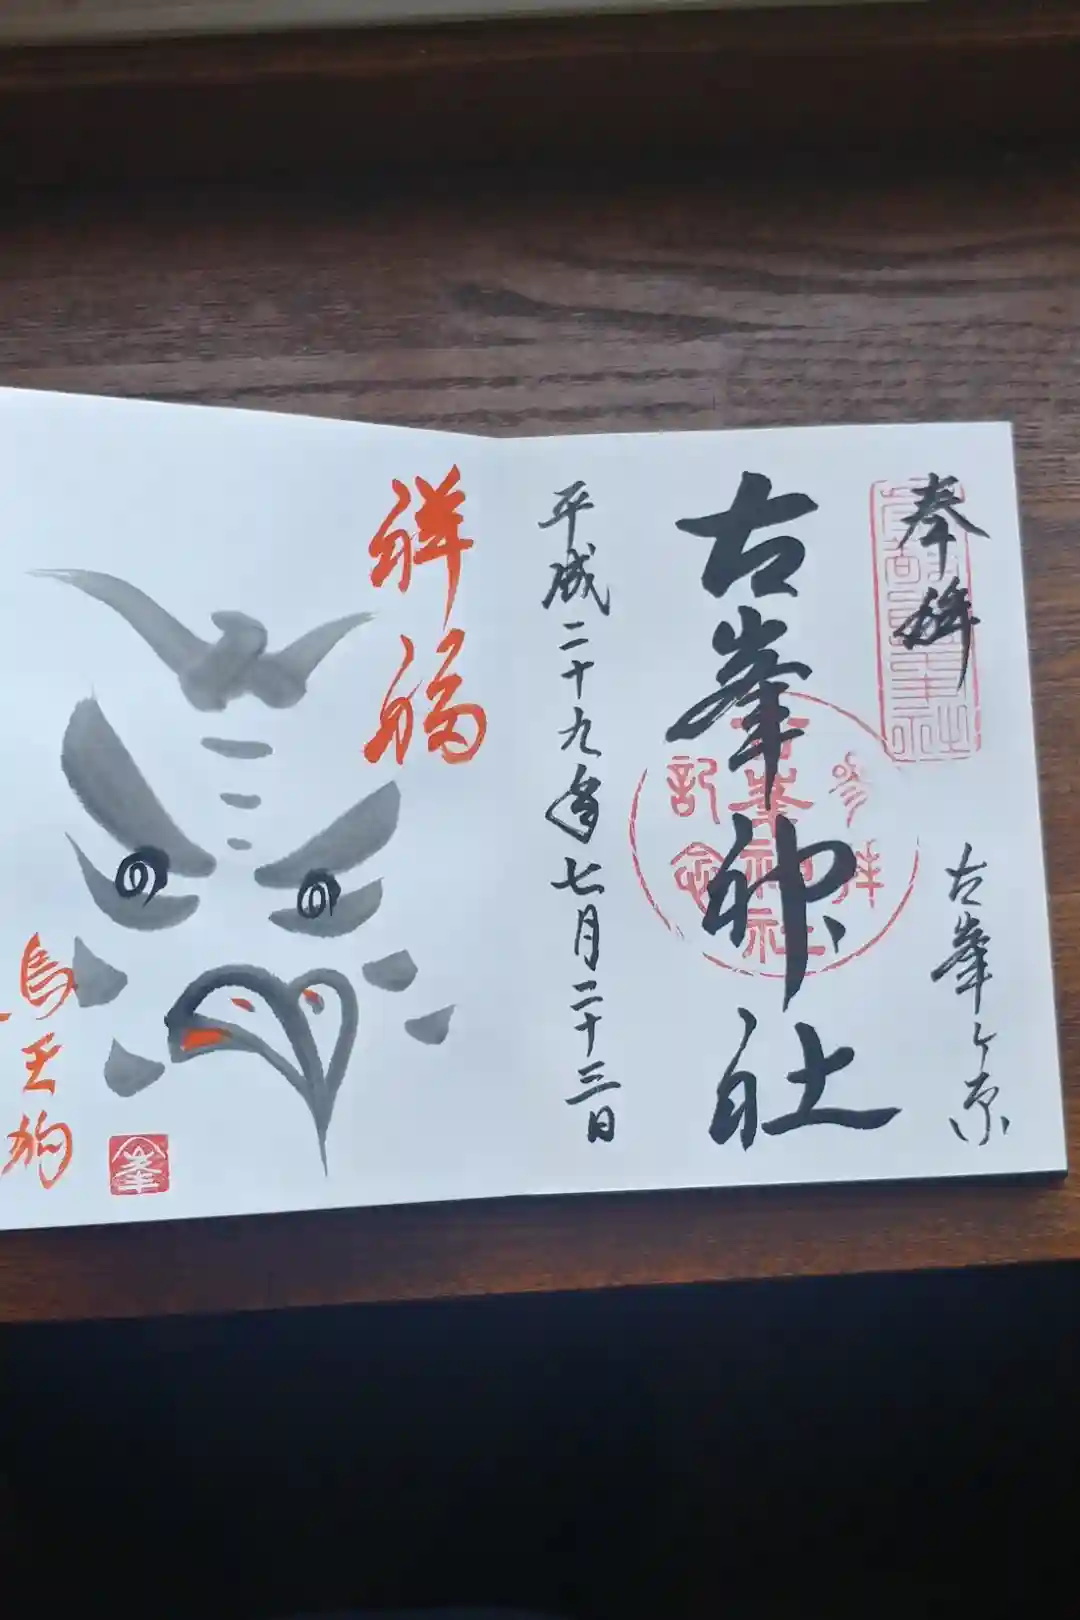 奉拝
古峯ヶ原
古峯神社
参拝
古峯神社
記念
平成二十九年七月二十三日
祥福
烏天狗
峯